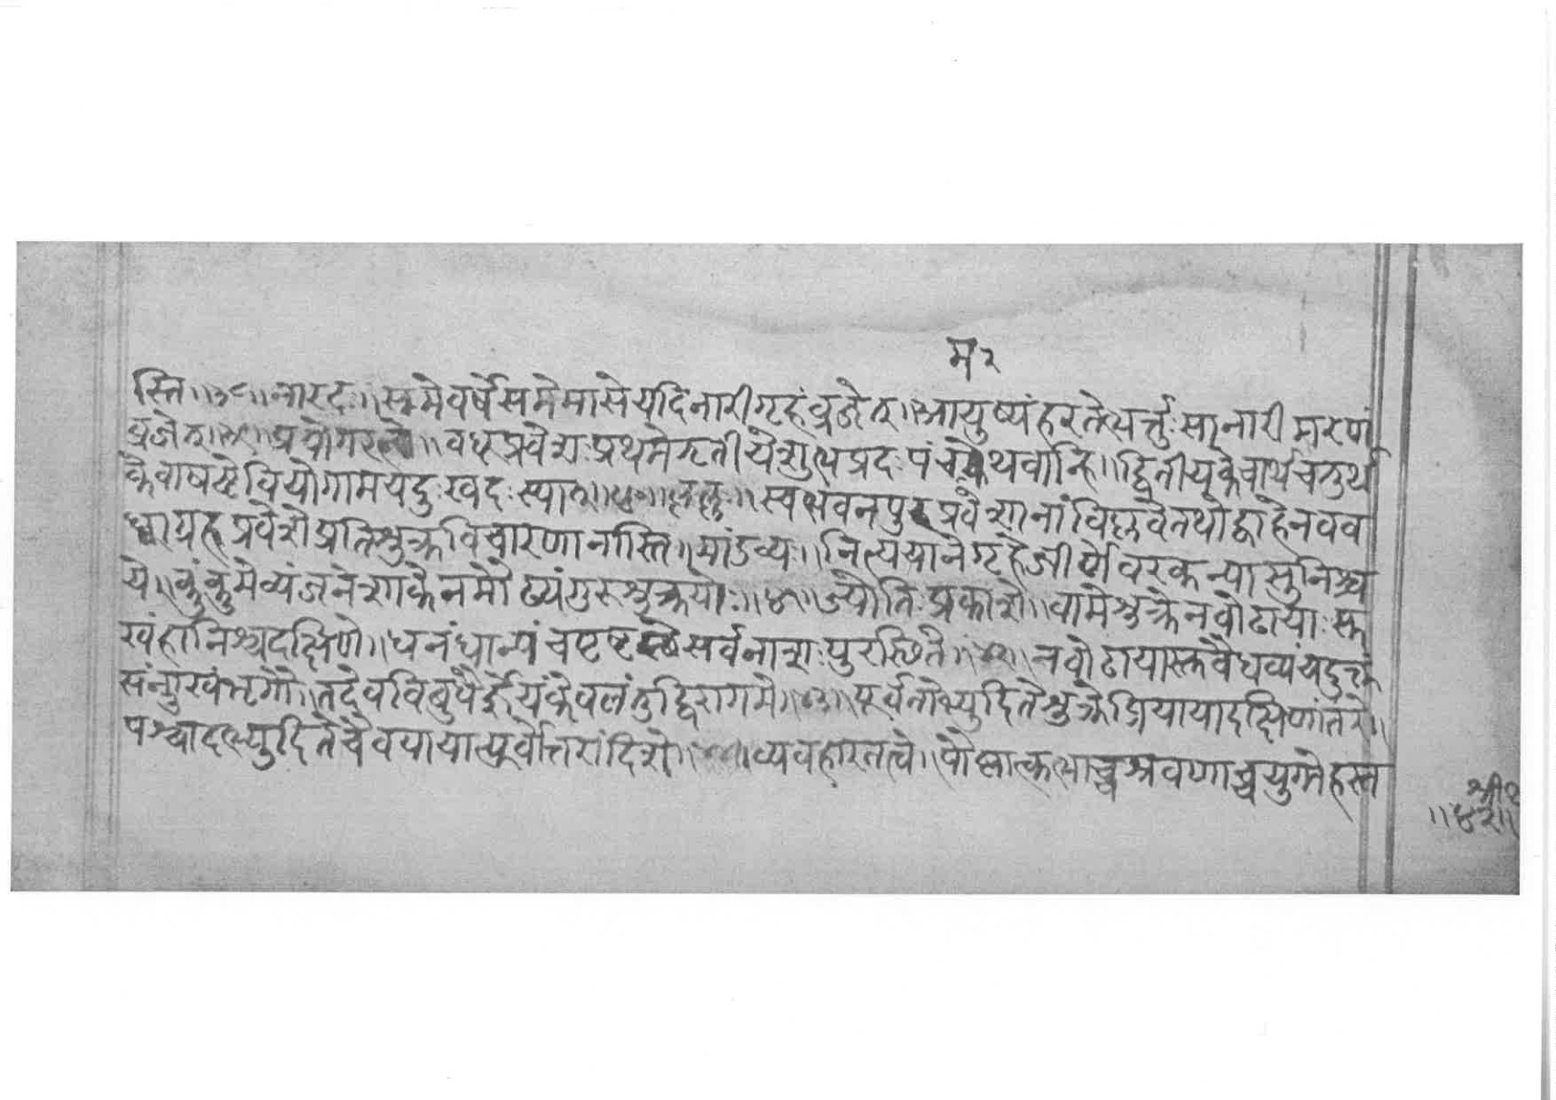 म २
स्ति ॥३९॥ नारदः ॥ समे वर्षे समे मासे यदि नारी गृहं व्रजेत् ॥ आयुष्यं हरते भर्त्तुः सा नारी मरणं
व्रजेत् ॥ प्रयोगरत्ने ॥ वधूप्रवेशः प्रथमे तृतीये शुभप्रदः पंचमेथवान्हि ॥ द्वितीयके वाथ चतुर्थ
के वा षष्ठे वियोगामयदुःखदः स्यात् ॥ स्वभवनपुरप्रवेशानां विप्लवे तथोद्वाहे नवव
ध्वाग्रहप्रवेशे प्रतिशुक्रविचारणा नास्ति ॥ मांडव्यः ॥ नित्ययाने गृहे जीर्णे वरकन्यासु निश्च
ये ॥ कुंकुमे व्यंजने शाके न मौढ्यं गुरुशुक्रयोः ॥ ज्योतिःप्रकाशे ॥ वामे शुक्रे नवोढायाः स्क
खं हानिश्च दक्षिणे ॥ धनं धान्यं च पृष्टस्छे सर्वनाशः पुरस्छिते ॥ नवोढायास्क वैधव्यं यदुक्तं
संन्मुखे भृगौ ॥ तदेव विबुधैर्ज्ञेयं केवलं तु द्विरागमे ॥ पूर्वतोभ्युदिते शुक्रे प्रियायाद्दक्षिणांतरे ॥
पश्चादभ्युदिते चैव यायात्पूर्वोत्तरां दिशे ॥ व्यवहारतत्वे ॥ पौष्णात्कभाच्च श्रवणाच्च युग्मे हस्त
श्री २
॥४२॥